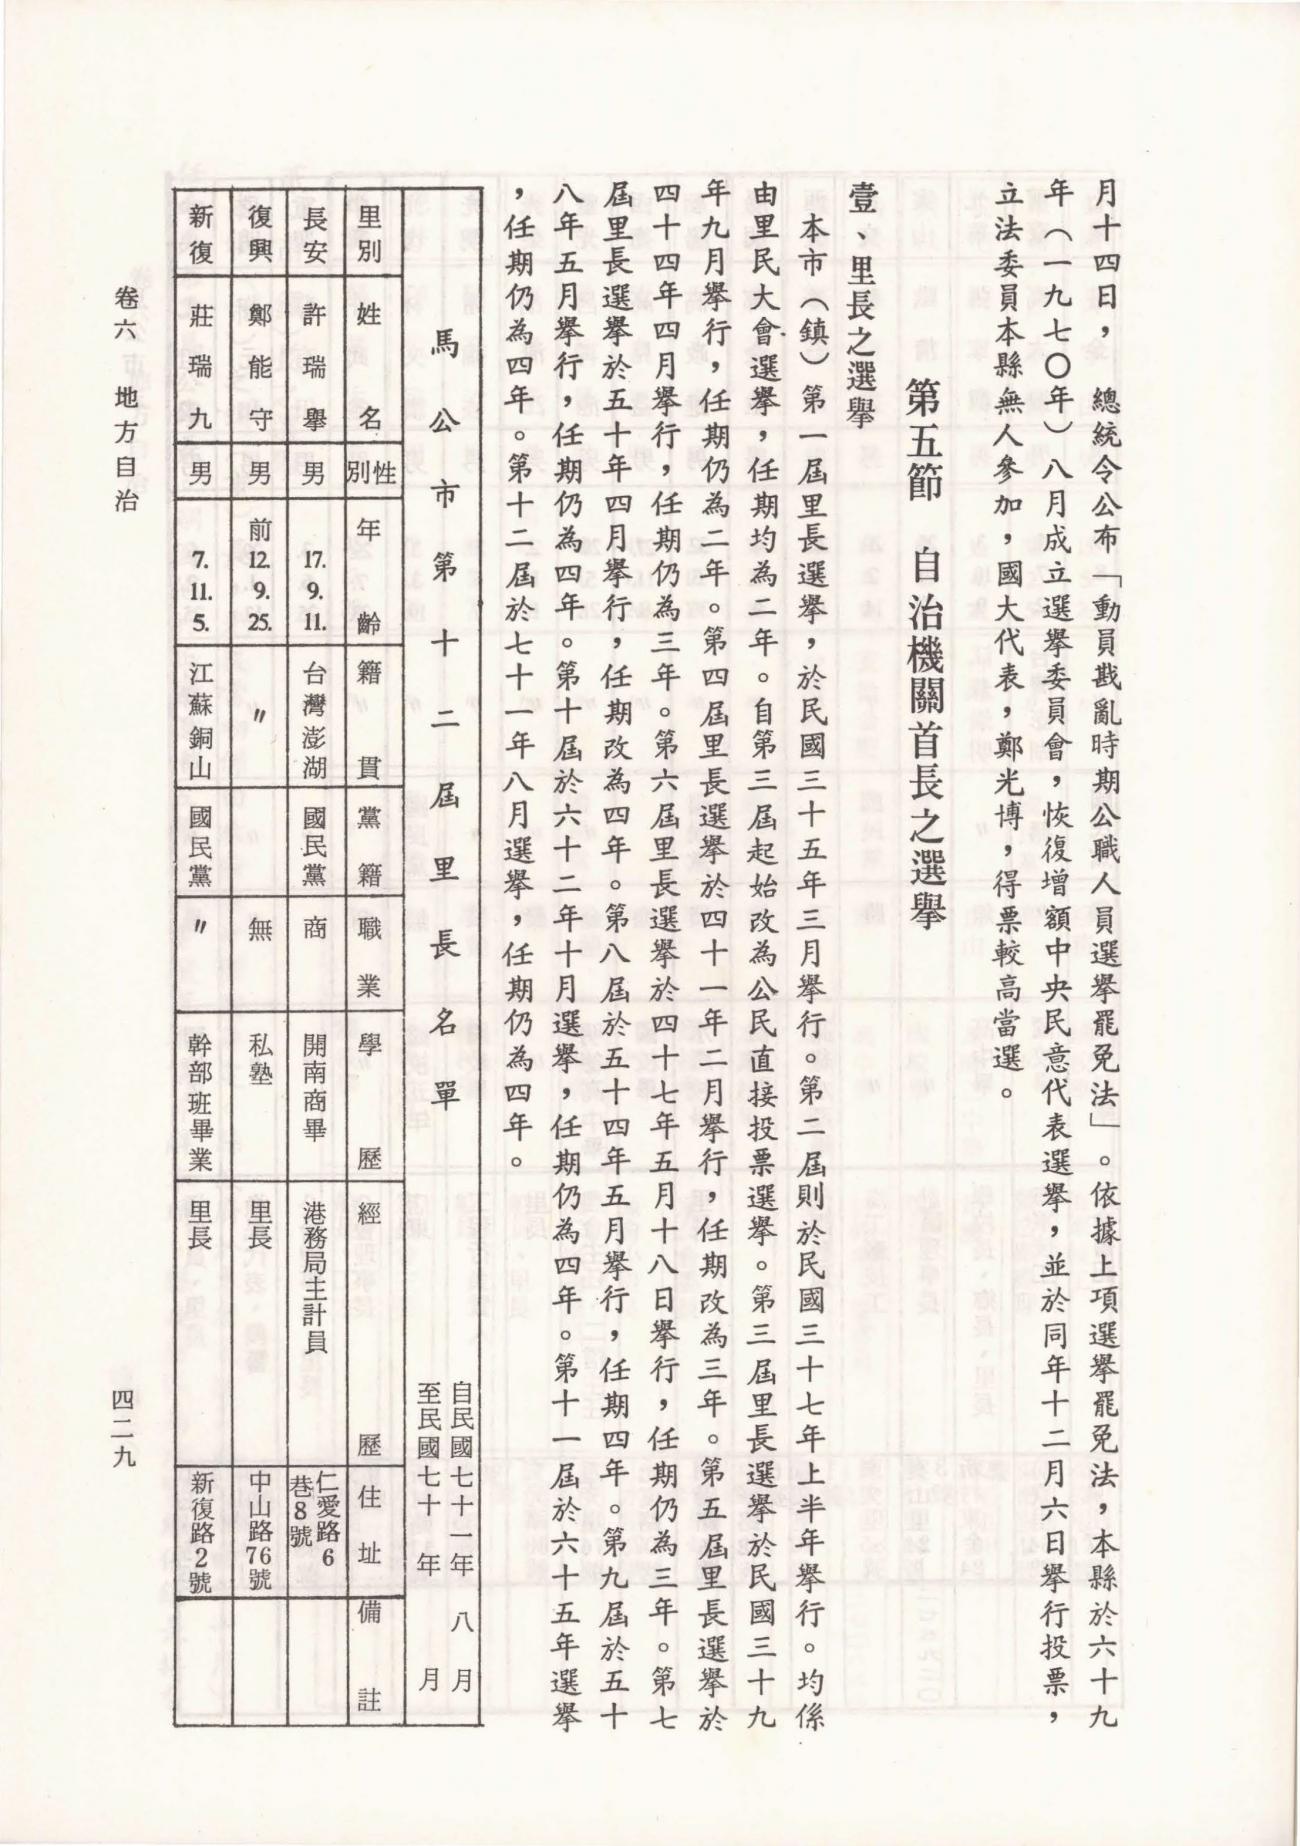 月十四日，　總統令公布「動員戡亂時期公職人員選舉罷免法」。依據上項選舉罷免法，本縣於六十九
年（一九七〇年）八月成立選舉委員會，恢復增額中央民意代表選舉，並於同年十二月六日舉行投票，
立法委員本縣無人參加，國大代表，鄭光博，得票較高當選。
第五節　自治機關首長之選舉
壹、里長之選舉
本市（鎮）第一屆里長選舉，於民國三十五年三月舉行。第二屆則於民國三十七年上半年舉行。均係
由里民大會選舉，任期均為二年。自第三屆起始改為公民直接投票選舉。第三屆里長選舉於民國三十九
年九月舉行，任期仍為二年。第四屆里長選舉於四十一年二月舉行，任期改為三年。第五屆里長選舉於
四十四年四月舉行，任期仍為三年。第六屆里長選舉於四十七年五月十八日舉行，任期仍為三年。第七
屆里長選舉於五十年四月舉行，任期改為四年。第八屆於五十四年五月舉行，任期四年。第九屆於五十
八年五月舉行，任期仍為四年。第十屆於六十二年十月選舉，任期仍為四年。第十一屆於六十五年選舉
，任期仍為四年。第十二屆於七十一年八月選舉，任期仍為四年。
馬公市第十二屆里長名單
自民國七十一年　八月
至民國七十　年　　月
里別　姓名　性別　年齡　籍貫　黨籍　職業　學歷　經歷　住址　備註
長安　許瑞舉　男　17. 9. 11.　台灣澎湖　國民黨　商　開南商畢　港務局主計員　仁愛路6巷8號
復興　鄭能守　男　前12. 9. 25.　〃　無　私塾　里長　中山路76號
新復　莊瑞九　男　7. 11. 5.　江蘇銅山　國民黨　〃　幹部班畢業　里長　新復路2號
卷六　地方自治
四二九